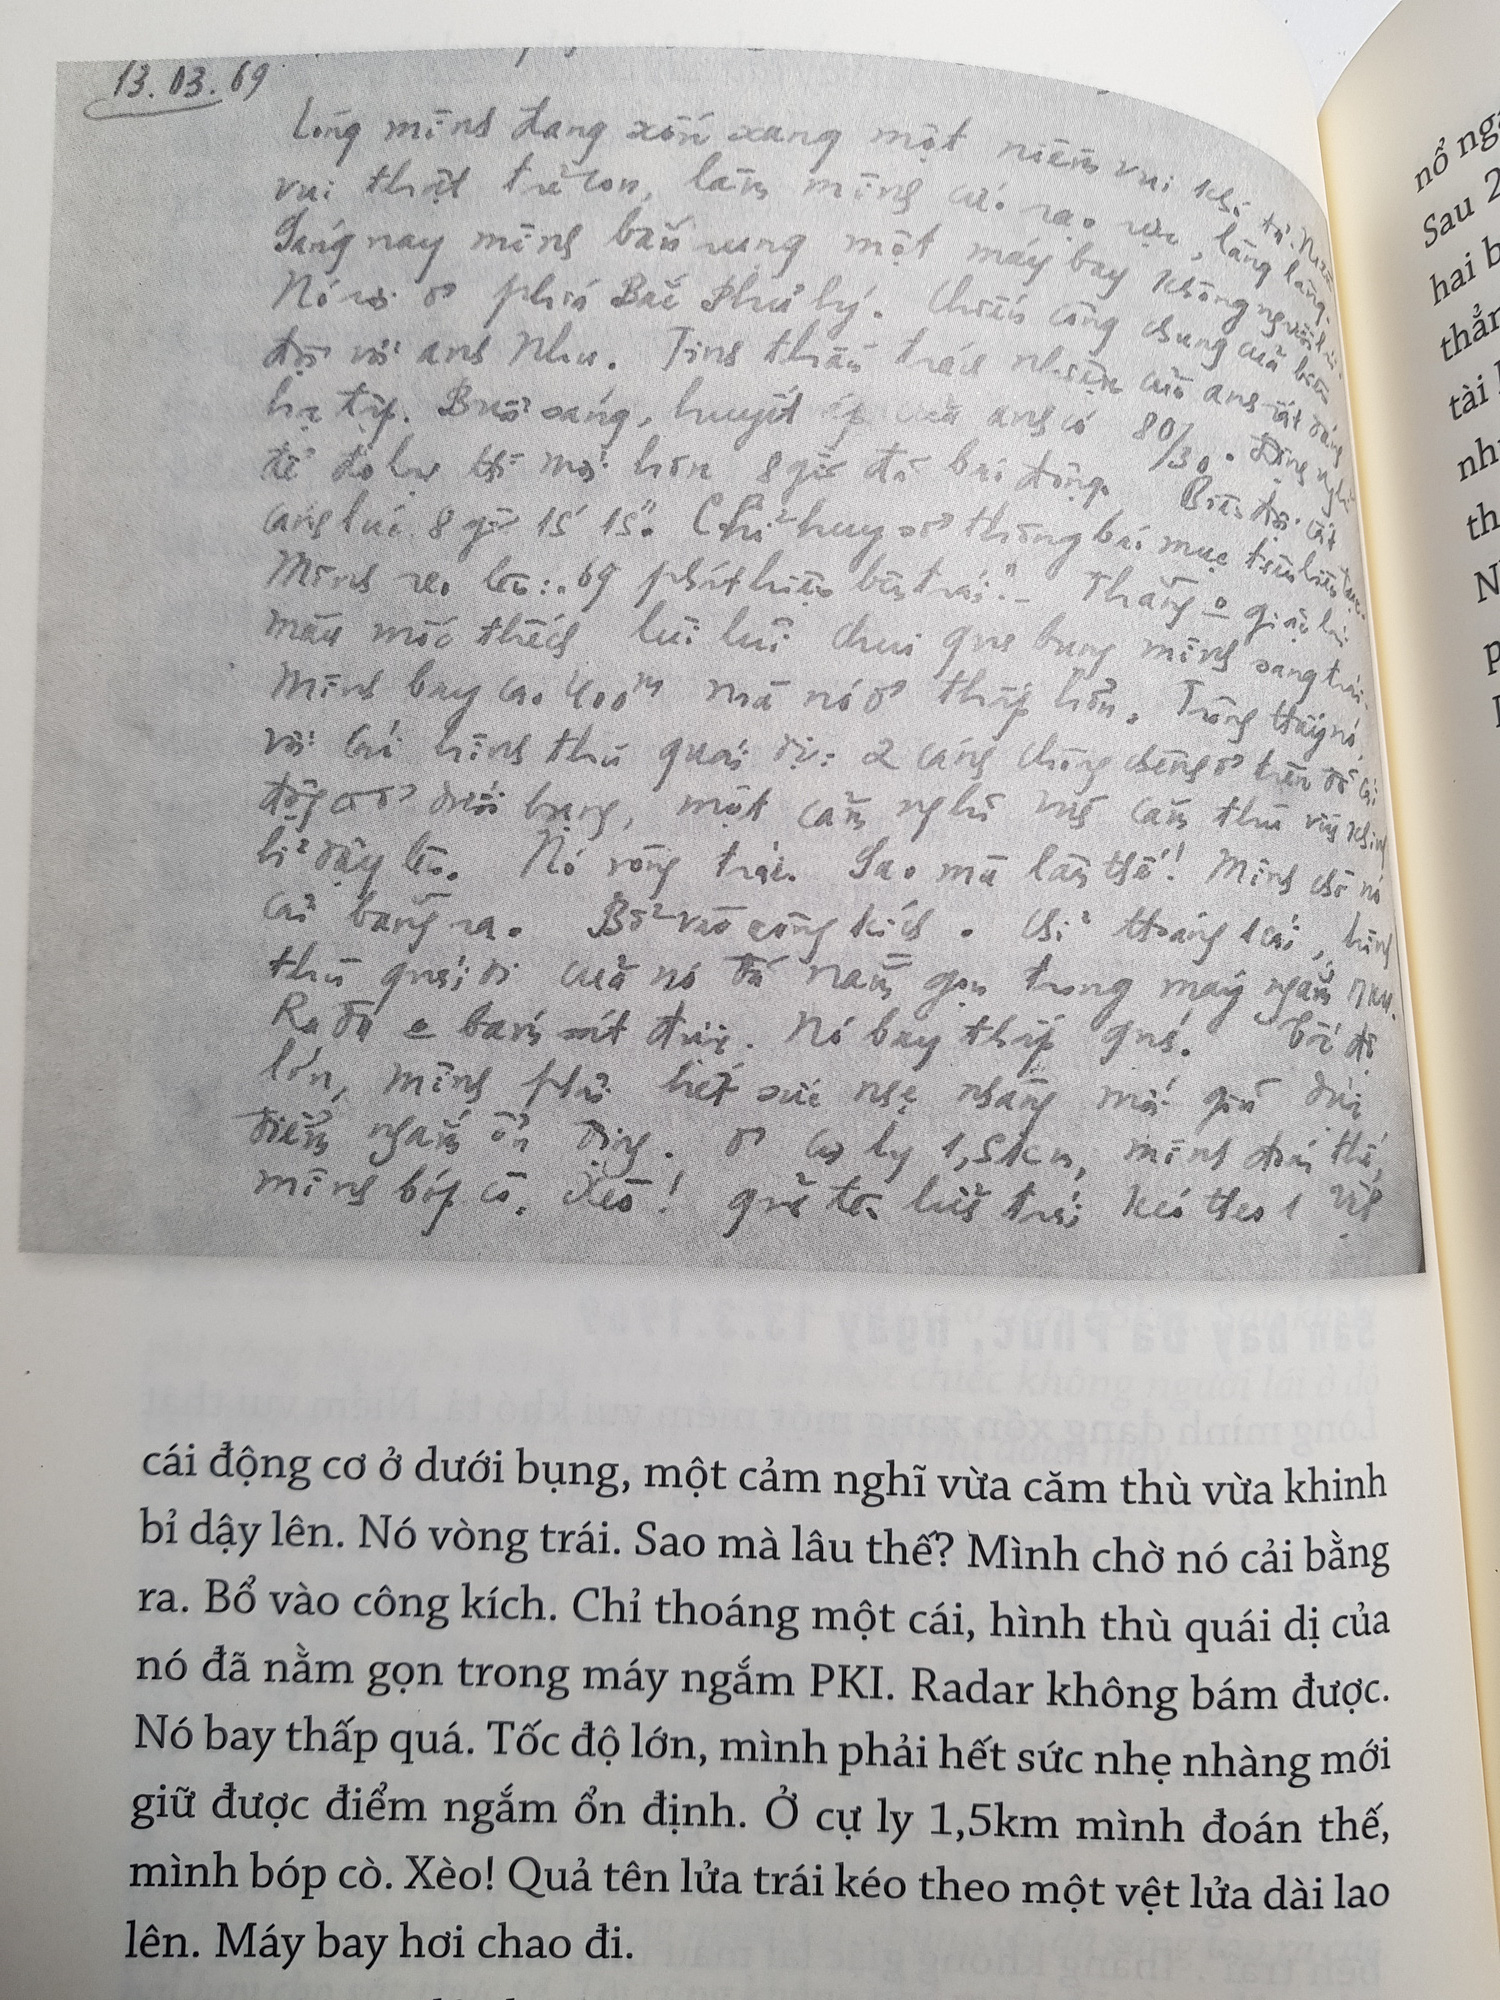 13.03.69
Lòng mình đang xốn xang một niềm vui khó tả. Niềm
vui thật trẻ con, làm mình cứ rạo rực, lâng lâng.
Sáng nay mình bắn rụng một máy bay không người lái.
Nó rơi ở phía Bắc Phủ Lý. Chiến công chung của biên
đội với anh Nhu. Tinh thần trách nhiệm của anh rất đáng
học tập. Buổi sáng, huyết áp của anh có 80/30. Định nghỉ
để đo lại thì mới hơn 8 giờ đã báo động. Biên đội cất
cánh lúc 8 giờ 15' 15". Chỉ huy sở thông báo mục tiêu liên tục.
Mình reo lên: "69 phát hiện bên trái". Thằng o người lái
màu mốc thếch lùi lũi chui qua bụng mình sang trái.
Mình bay cao 400m mà nó ở thấp hơn. Trông thấy nó,
với cái hình thù quái dị: 2 cánh chông chênh ở trên và cái
động cơ ở dưới bụng, một cảm nghĩ vừa căm thù vừa khinh
bỉ dậy lên. Nó vòng trái. Sao mà lâu thế! Mình chờ nó
cải bằng ra. Bổ vào công kích. Chỉ thoáng 1 cái, hình
thù quái dị của nó đã nằm gọn trong máy ngắm ПКИ.
Ra đa o bám sát được. Nó bay thấp quá. Tốc độ
lớn, mình phải hết sức nhẹ nhàng mới giữ được
điểm ngắm ổn định. Ở cự ly 1,5km, mình đoán thế,
mình bóp cò. Xèo! Quả tên lửa trái kéo theo 1 vệt
cái động cơ ở dưới bụng, một cảm nghĩ vừa căm thù vừa khinh
bỉ dậy lên. Nó vòng trái. Sao mà lâu thế? Mình chờ nó cải bằng
ra. Bổ vào công kích. Chỉ thoáng một cái, hình thù quái dị của
nó đã nằm gọn trong máy ngắm PKI. Radar không bám được.
Nó bay thấp quá. Tốc độ lớn, mình phải hết sức nhẹ nhàng mới
giữ được điểm ngắm ổn định. Ở cự ly 1,5km mình đoán thế,
mình bóp cò. Xèo! Quả tên lửa trái kéo theo một vệt lửa dài lao
lên. Máy bay hơi chao đi.
nổ
Sau 2
hai